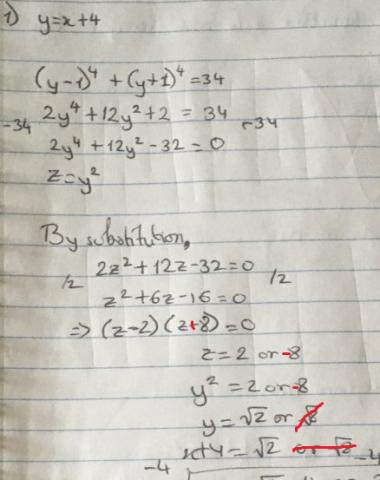 1) y=x+4
(y-1)⁴ + (y+1)⁴ = 34
-34 2y⁴ + 12y² + 2 = 34 -34
2y⁴ + 12y² - 32 = 0
z=y²
By substitution,
/2 2z² + 12z - 32 = 0 /2
z² + 6z - 16 = 0
=> (z-2)(z+8) = 0
z = 2 or -8
y² = 2 or -8
y = √2 or √8
x+4 = √2 or √8 -4
-4